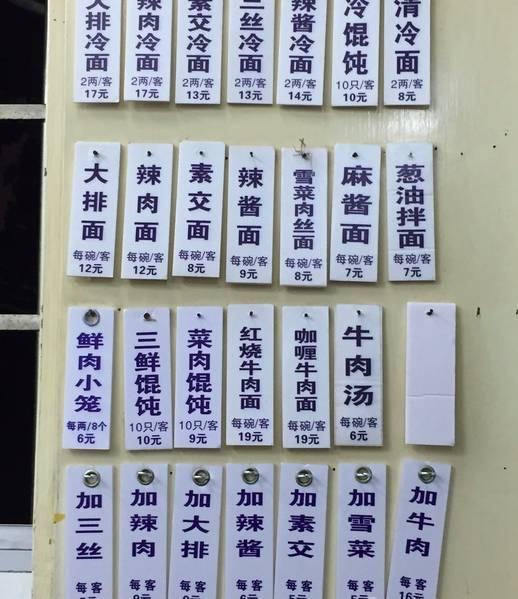 大排冷面
2两/客
17元
辣肉冷面
2两/客
17元
素交冷面
2两/客
13元
三丝冷面
2两/客
13元
辣酱冷面
2两/客
14元
冷馄饨
10只/客
10元
清冷面
2两/客
8元
大排面
每碗/客
12元
辣肉面
每碗/客
12元
素交面
每碗/客
8元
辣酱面
每碗/客
9元
雪菜肉丝面
每碗/客
8元
麻酱面
每碗/客
7元
葱油拌面
每碗/客
7元
鲜肉小笼
每两/8个
6元
三鲜馄饨
10只/客
10元
菜肉馄饨
10只/客
9元
红烧牛肉面
每碗/客
19元
咖喱牛肉面
每碗/客
19元
牛肉汤
每碗/客
6元
加三丝
每客
加辣肉
每客
加大排
每客
加辣酱
每客
加素交
每客
加雪菜
每客
加牛肉
每客
16元